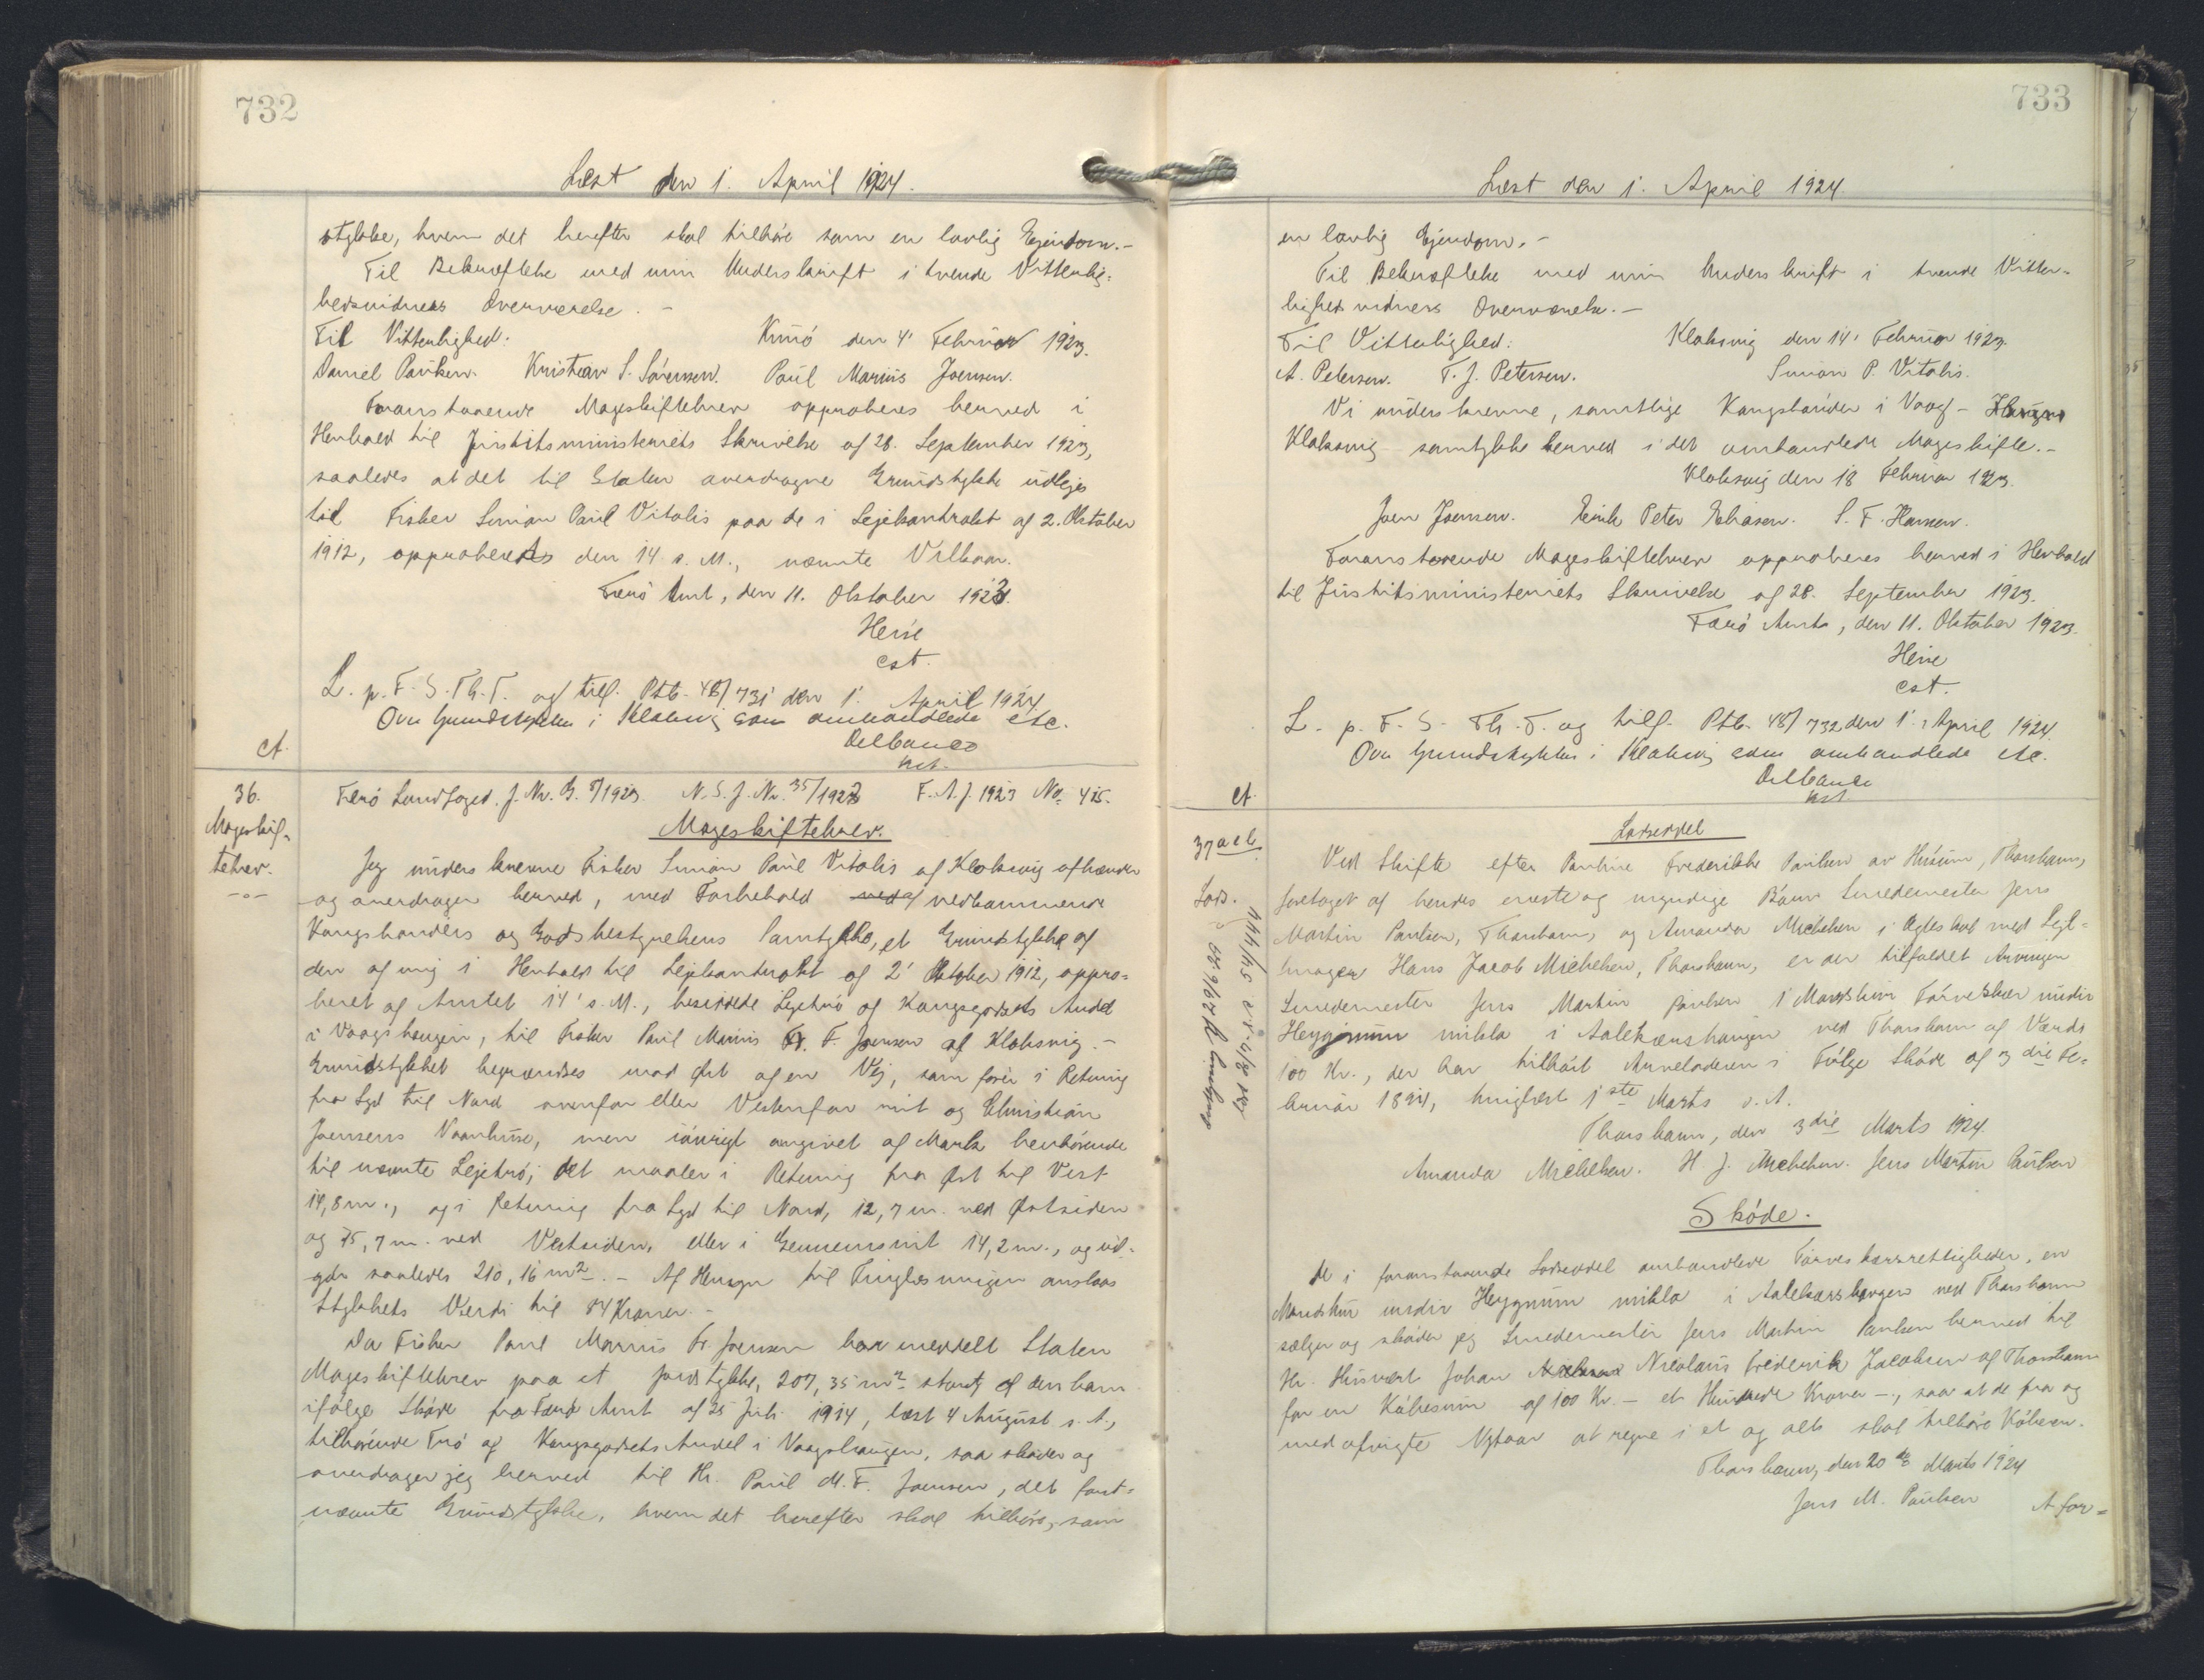 732
Læst den 1. April 1924.
stykke, hvem det herefter skal tilhøre som en lovlig Ejendom.-
Til Bekræftelse med min Underskrift i tvende Vitterlig-
hedsvidners Overværelse. -
Til Vitterlighed: Kunó den 4' Februar 1923.
Daniel Paulsen. Kristian S. Sørensen. Paul Marius Joensen.
Foranstaaende Mageskiftebrev approberes herved i
Henhold til Justitsministeriets Skrivelse af 28. September 1923,
saaledes at det til Staten overdragne Grundstykke udlejes
til Fisker Simon Paul Vitalis paa de i Lejekontrakt af 2. Oktober
1912, approberet den 14 s. M., nævnte Vilkaar.
Færö Amt, den 11. Oktober 1923.
Heise
cst.
L. p. F. S. Th. T. og tilf. Ptb. 48/731 den 1' April 1924.
Ovre Grundstykker i Klaksvig som omhandlede etc.
Delbanco
kst.
ct.
36.
Mageskif-
tebrev.
-o-
Færó Landfoged. J. Nr. G. 8/1923. N. S. J. Nr. 35/1923 F. A. J. 1923 No. 415.
Mageskiftebrev.
Jeg underskrevne Fisker Simon Paul Vitalis af Klaksvig afhænder
og overdrager herved, med Forbehold af vedkommende
Kongsbonders og Godsbestyrelsens Samtykke, et Grundstykke af
den af mig i Henhold til Lejekontrakt af 2' Oktober 1912, appro-
beret af Amtet 14' s. M., besiddede Lejetrö af Kongsgodsets Andel
i Vaagshaugen, til Fisker Paul Marius Fr. F. Joensen af Klaksvig.-
Grundstykket begrændses mod Øst af en Vej, som fører i Retning
fra Syd til Nord ovenfor eller Vestenfor mit og Christian
Joensens Vaanhuse, men iøvrigt omgivet af Mark henhørende
til nævnte Lejetrö; det maaler i Retning fra Øst til Vest
14,8 m., og i Retning fra Syd til Nord, 12,7 m. ved Østsiden
og 15,7 m. ved Vestsiden, eller i Gennemsnit 14,2 m., og ud-
gør saaledes 210,16 m². - Af Hensyn til Tinglæsningen anslaas
Stykkets Værdi til 84 Kroner. -
Da Fisker Paul Marius Fr. Joensen har meddelt Staten
Mageskiftebrev paa et Jordstykke, 207,35 m² stort, af den ham
ifølge Skøde fra Færö Amt af 25 Juli 1914, læst 4 August s. A.,
tilhørende Trö af Kongsgodsets Andel i Vaagshaugen, saa skøder og
overdrager jeg herved til Hr. Paul M. F. Joensen, det først-
nævnte Grundstykke, hvem det herefter skal tilhøre, som
733
Læst den 1. April 1924
en lovlig Ejendom. -
Til Bekræftelse med min Underskrift i tvende Vitter-
lighedsvidners Overværelse. -
Til Vitterlighed: Klaksvig den 14' Februar 1923.
A. Petersen. T. J. Petersen. Simon P. Vitalis.
Vi underskrevne, samtlige Kongsbønder i Vaag-
Klaksvig samtykke herved i det omhandlede Mageskifte. -
Klaksvig den 18 Februar 1923.
Joen Joensen. Eirik Peter Eliasen. S. F. Hansen.
Foranstaaende Mageskiftebrev approberes herved i Henhold
til Justitsministeriets Skrivelse af 28. September 1923.
Færö Amt, den 11. Oktober 1923.
Heise
cst.
L. p. F. S. Th. T. og tilf. Ptb. 48/732 den 1' April 1924.
Ovre Grundstykker i Klaksvig som omhandlede etc.
Delbanco
kst.
ct.
37 a & b
Lods.
Lodseddel
Ved Skifte efter Pauline Frederikke Paulsen av Húsum, Thorshavn,
foretaget af hendes eneste og myndige Børn Smedemester Jens
Martin Paulsen, Thorshavn, og Amanda Michelsen i Ægteskab med Sejl-
mager Hans Jacob Michelsen, Thorshavn, er der tilfaldet Arvingen
Smedemester Jens Martin Paulsen 1 Torveskær undir
Heygnum mikla i Aalekærshaugen ved Thorshavn af Værdi
100 Kr., der har tilhørt Arveladeren i Følge Skøde af 3 die Fe-
bruar 1894, tinglæst 1ste Marts s. A.
Thorshavn, den 3die Marts 1924.
Amanda Michelsen. H J. Michelsen. Jens Martin Paulsen
Skóde.
De i foranstaaende Lodseddel omhandlede Tørveskærsrettigheder, en
undir Heygnum mikla i Aalekærshaugen ved Thorshavn
sælger og skøder jeg Smedemester Jens Martin Paulsen herved til
Hr. Husvært Johan Nicolaus Frederik Jacobsen af Thorshavn
for en Købesum af 100 Kr. - et Hundrede Kroner -, saa at de fra og
med afvigte Nytaar at regne i et og alt skal tilhøre Køberen.
Thorshavn, den 20de Marts 1924
Jens M. Paulsen
A for=